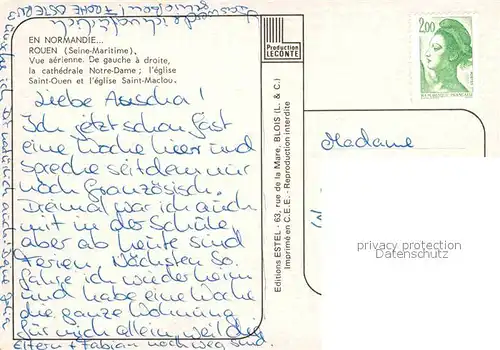 EN NORMANDIE...
ROUEN (Seine-Maritime),
Vue aérienne. De gauche à droite,
la cathédrale Notre-Dame ; l'église
Saint-Ouen et l'église Saint-Maclou.
Liebe
Ich jetzt schon fast
eine Woche hier und
spreche seitdem nur
noch Französisch.
Dreimal war ich auch
mit in der Schule,
aber ab heute sind
Ferien. Nächsten So.
fahre ich wieder heim
und habe eine Woche
die ganze Wohnung
für mich allein, weil die
Eltern + Fabian noch weg sind.
FROHE OSTERN
Production
LECONTE
Editions ESTEL - 63, rue de la Mare, BLOIS (L. & C.)
Imprimé en C.E.E. - Reproduction interdite
2,00
Madame
privacy protection
ansichtskartenversand.com